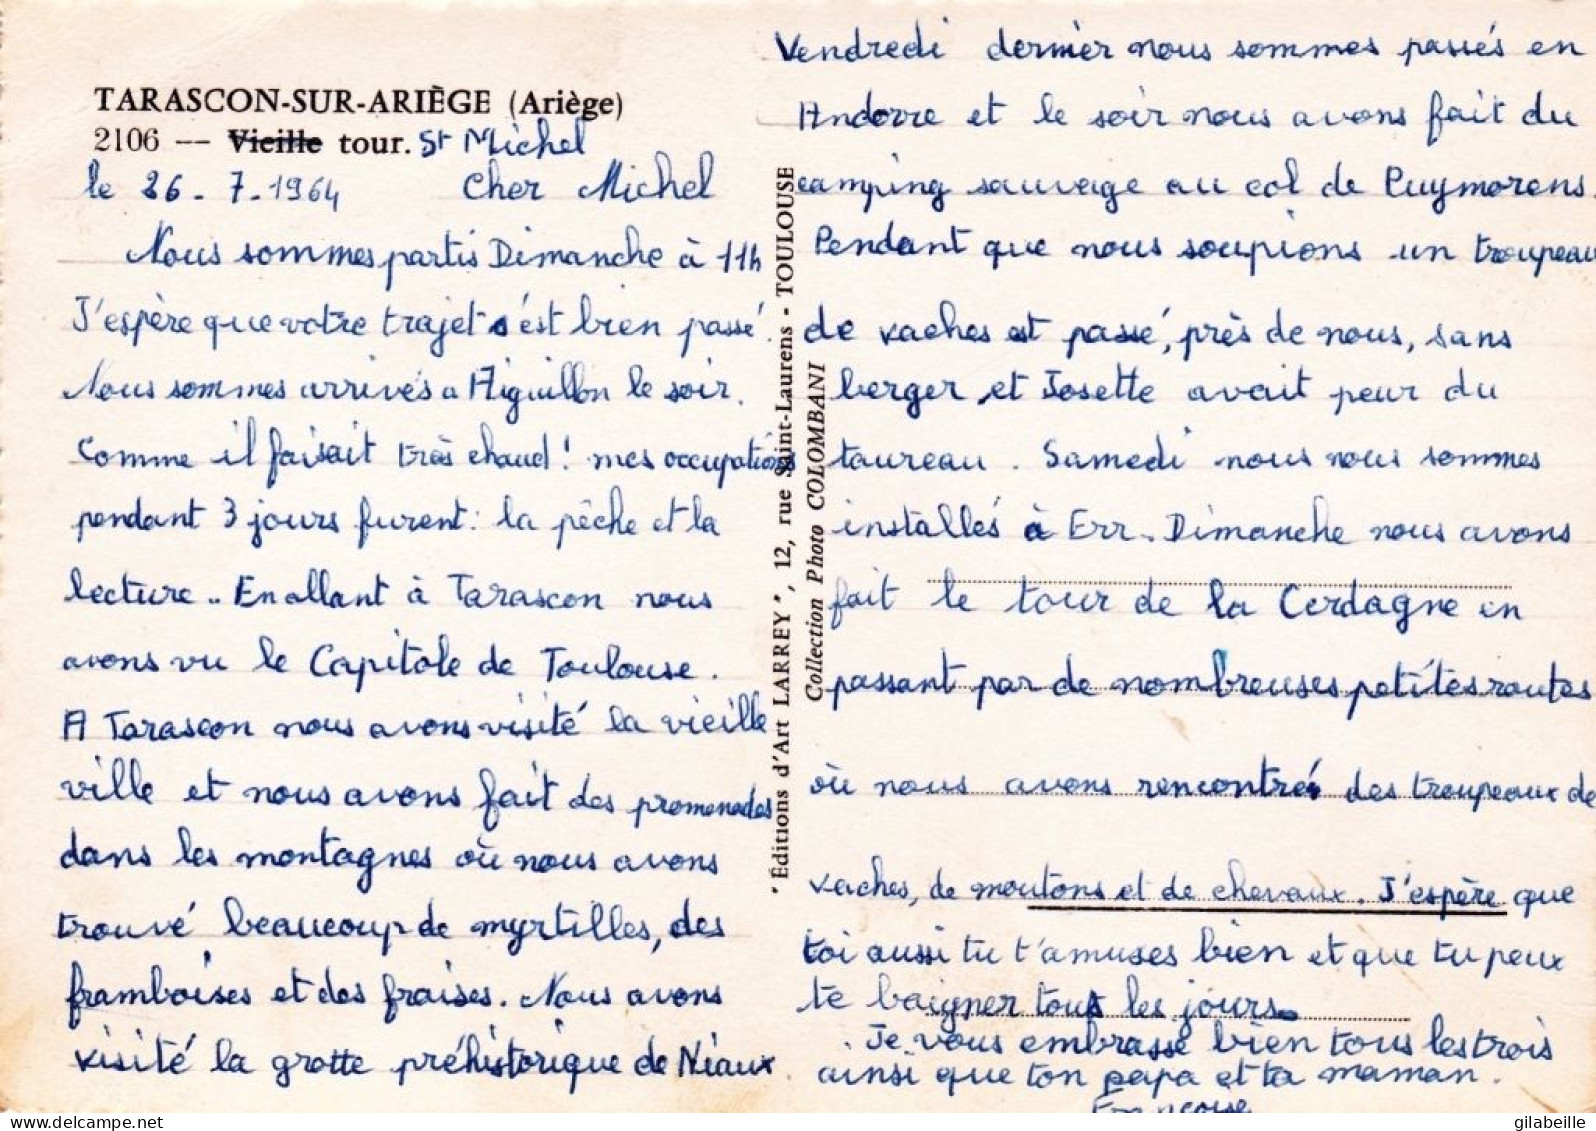 TARASCON-SUR-ARIÈGE (Ariège)
2106 — Vieille tour. St Michel
le 26-7-1964 Cher Michel
Nous sommes partis Dimanche à 11h
J'espère que votre trajet s'est bien passé.
Nous sommes arrivés a Aiguillon le soir.
Comme il faisait très chaud! mes occupations
pendant 3 jours furent: la pêche et la
lecture.. En allant à Tarascon nous
avons vu le Capitole de Toulouse.
A Tarascon nous avons visité la vieille
ville et nous avons fait des promenades
dans les montagnes où nous avons
trouvé beaucoup de myrtilles, des
framboises et des fraises. Nous avons
visité la grotte préhistorique de Niaux
"Éditions d'Art LARREY", 12, rue Saint-Laurens - TOULOUSE
Collection Photo COLOMBANI
Vendredi dernier nous sommes passés en
Andorre et le soir nous avons fait du
camping sauvage au col de Puymorens.
Pendant que nous soupions un troupeau
de vaches est passé, près de nous, sans
berger, et Josette avait peur du
taureau. Samedi nous nous sommes
installés à Err. Dimanche nous avons
fait le tour de la Cerdagne en
passant par de nombreuses petites routes
où nous avons rencontré des troupeaux de
vaches, de moutons et de chevaux. J'espère que
toi aussi tu t'amuses bien et que tu peux
te baigner tous les jours.
Je vous embrasse bien tous les trois
ainsi que ton papa et ta maman.
Françoise
gilabeille